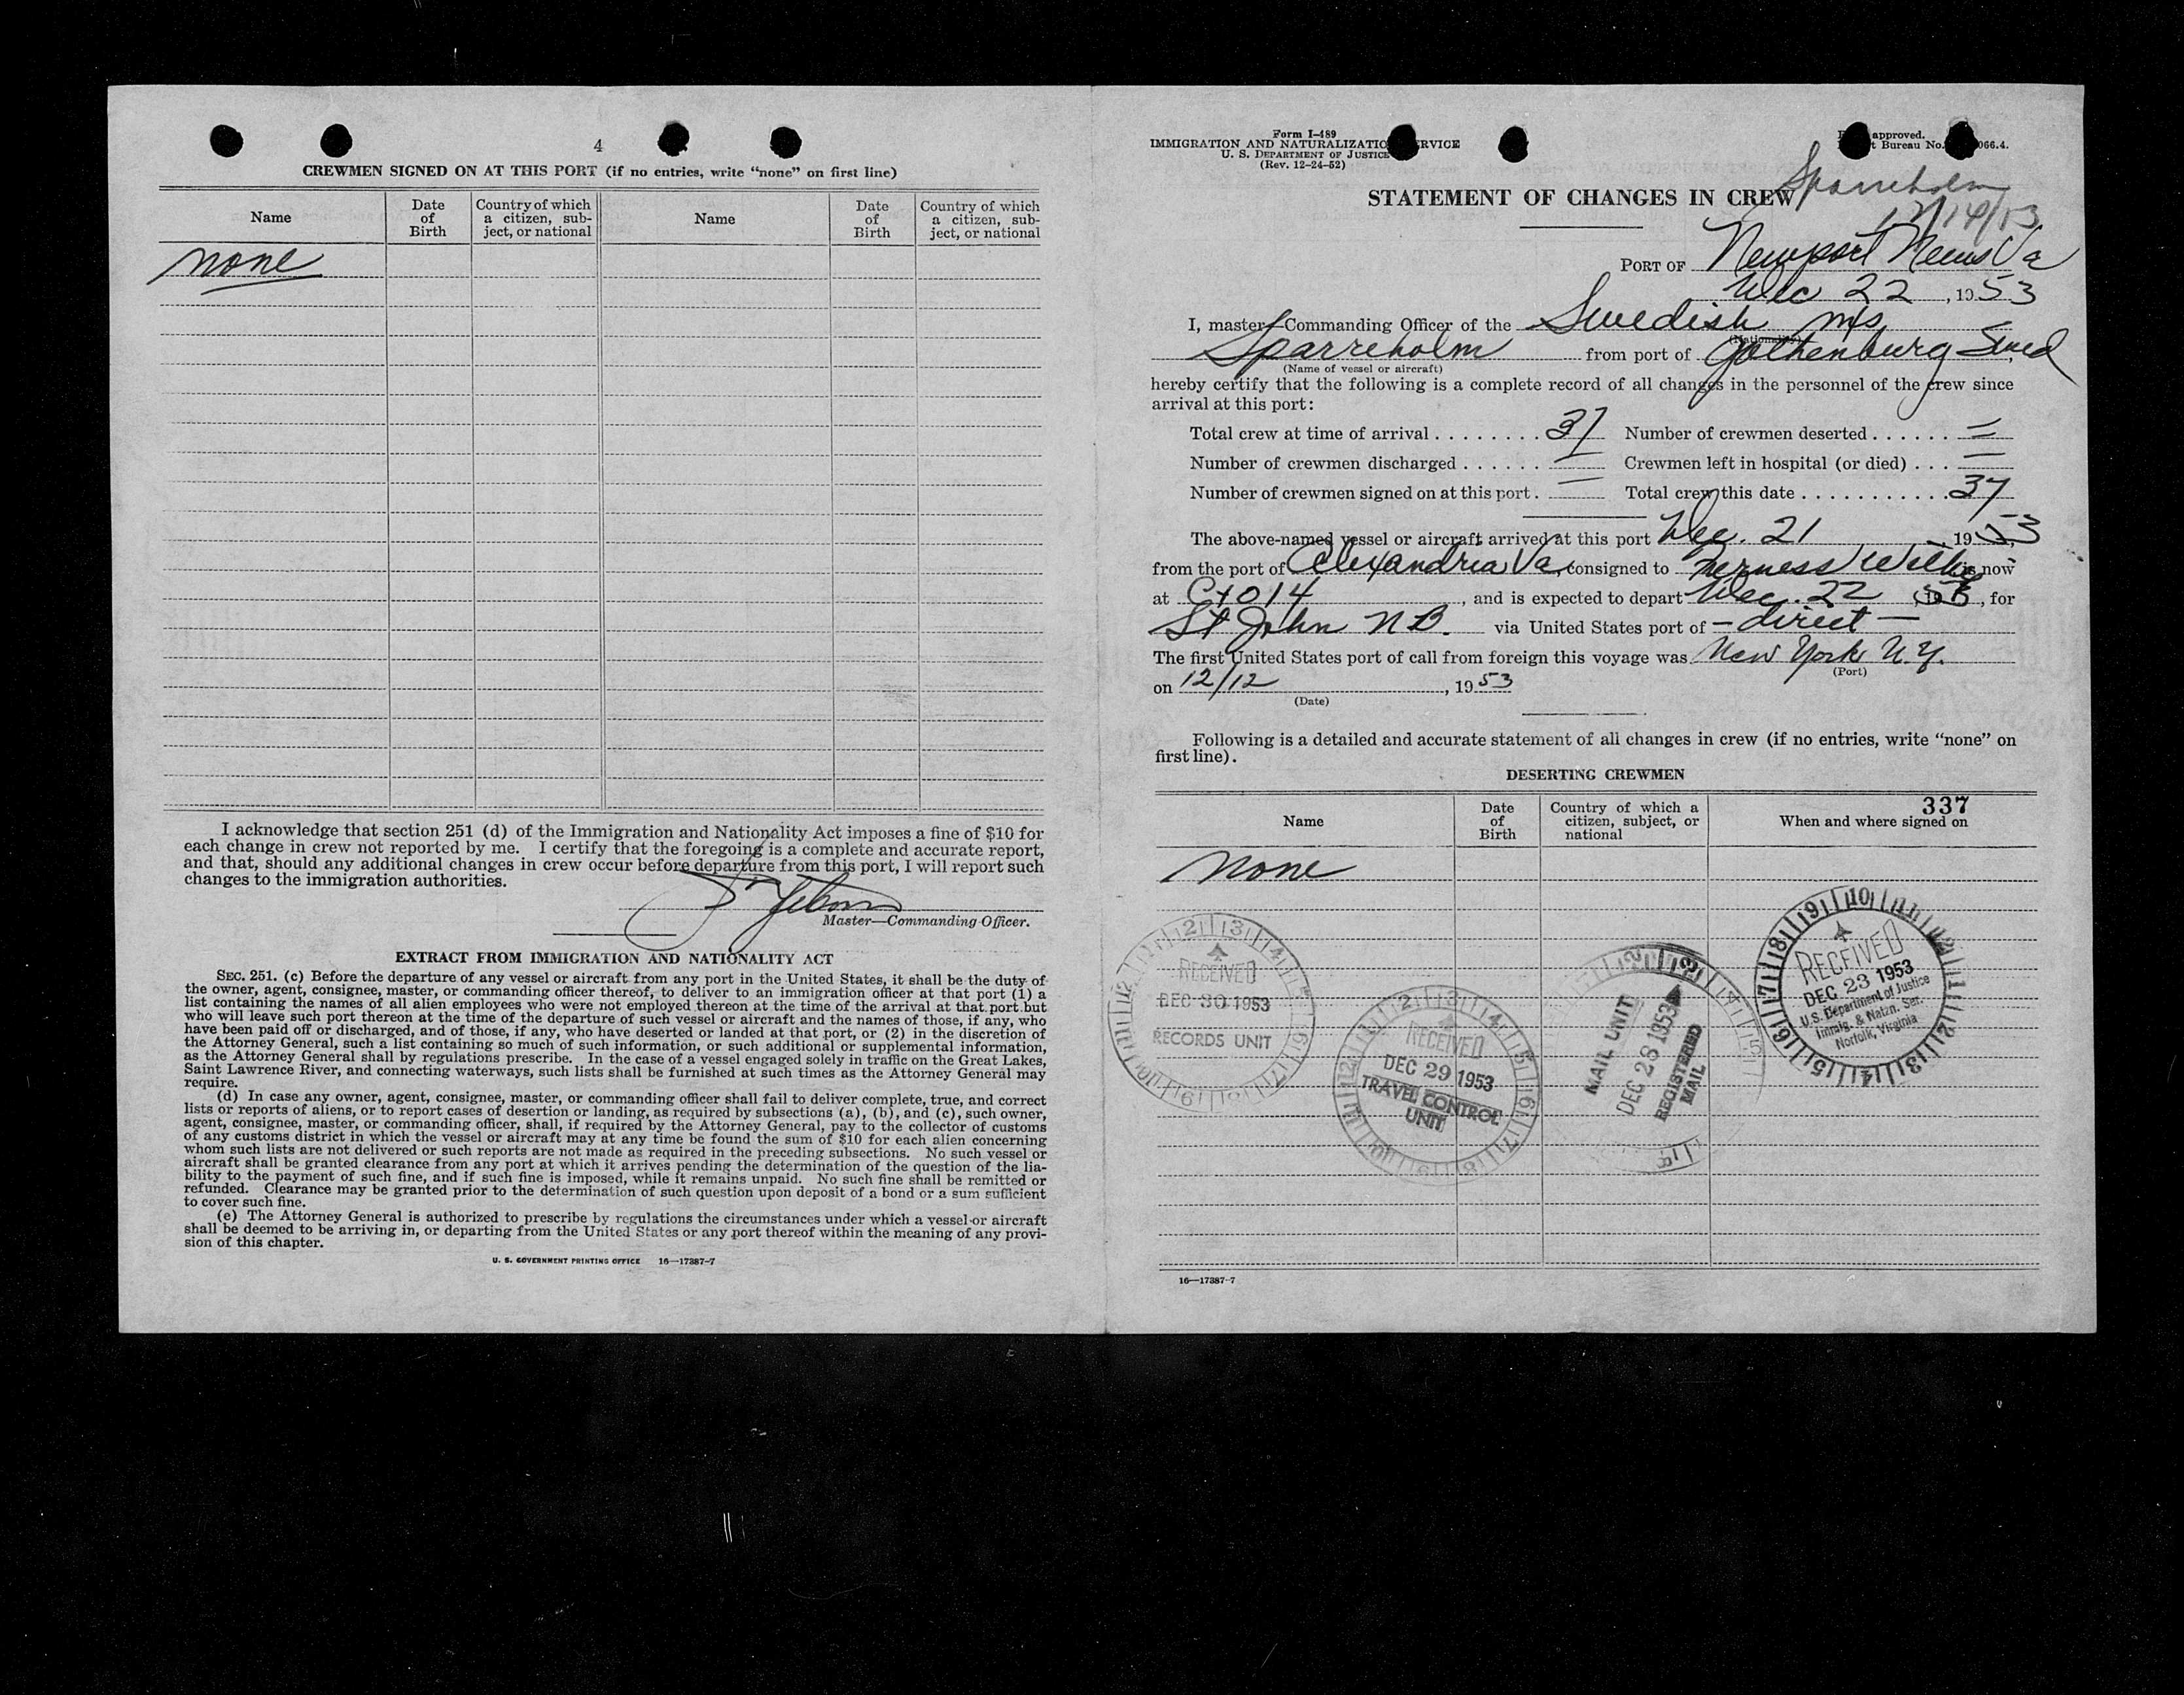 4
CREWMEN SIGNED ON AT THIS PORT (if no entries, write “none” on first line)
Name Date of Birth Country of which a citizen, sub-ject, or national Name Date of Birth Country of which a citizen, sub-ject, or national
none
I acknowledge that section 251 (d) of the Immigration and Nationality Act imposes a fine of $10 for
each change in crew not reported by me. I certify that the foregoing is a complete and accurate report,
and that, should any additional changes in crew occur before departure from this port, I will report such
changes to the immigration authorities.
Master—Commanding Officer.
EXTRACT FROM IMMIGRATION AND NATIONALITY ACT
SEC. 251. (c) Before the departure of any vessel or aircraft from any port in the United States, it shall be the duty of
the owner, agent, consignee, master, or commanding officer thereof, to deliver to an immigration officer at that port (1) a
list containing the names of all alien employees who were not employed thereon at the time of the arrival at that port but
who will leave such port thereon at the time of the departure of such vessel or aircraft and the names of those, if any, who
have been paid off or discharged, and of those, if any, who have deserted or landed at that port, or (2) in the discretion of
the Attorney General, such a list containing so much of such information, or such additional or supplemental information,
as the Attorney General shall by regulations prescribe. In the case of a vessel engaged solely in traffic on the Great Lakes,
Saint Lawrence River, and connecting waterways, such lists shall be furnished at such times as the Attorney General may
require.
(d) In case any owner, agent, consignee, master, or commanding officer shall fail to deliver complete, true, and correct
lists or reports of aliens, or to report cases of desertion or landing, as required by subsections (a), (b), and (c), such owner,
agent, consignee, master, or commanding officer, shall, if required by the Attorney General, pay to the collector of customs
of any customs district in which the vessel or aircraft may at any time be found the sum of $10 for each alien concerning
whom such lists are not delivered or such reports are not made as required in the preceding subsections. No such vessel or
aircraft shall be granted clearance from any port at which it arrives pending the determination of the question of the lia-
bility to the payment of such fine, and if such fine is imposed, while it remains unpaid. No such fine shall be remitted or
refunded. Clearance may be granted prior to the determination of such question upon deposit of a bond or a sum sufficient
to cover such fine.
(e) The Attorney General is authorized to prescribe by regulations the circumstances under which a vessel or aircraft
shall be deemed to be arriving in, or departing from the United States or any port thereof within the meaning of any provi-
sion of this chapter.
U. S. GOVERNMENT PRINTING OFFICE 16—17387-7
Form I-489
IMMIGRATION AND NATURALIZATIO RVICE
U. S. DEPARTMENT OF JUSTICE
(Rev. 12-24-52)
approved.
t Bureau No. 066.4.
Sparreholm
12/14/53
STATEMENT OF CHANGES IN CREW
PORT OF Newport News Va
Dec 22, 1953
I, master—Commanding Officer of the Swedish m/s
(Nationality)
Sparreholm from port of Gothenburg Swed
(Name of vessel or aircraft)
hereby certify that the following is a complete record of all changes in the personnel of the crew since
arrival at this port:
Total crew at time of arrival ........ 37 Number of crewmen deserted ...... —
Number of crewmen discharged ...... — Crewmen left in hospital (or died) ... —
Number of crewmen signed on at this port. — Total crew this date ........... 37
The above-named vessel or aircraft arrived at this port Dec. 21, 1953,
from the port of Alexandria Va, consigned to is now
at C+O 14, and is expected to depart Dec. 22, 1953, for
St John N B. via United States port of — direct —
The first United States port of call from foreign this voyage was New York N.Y.
(Port)
on 12/12, 1953
(Date)
Following is a detailed and accurate statement of all changes in crew (if no entries, write “none” on
first line).
DESERTING CREWMEN
337
Name Date of Birth Country of which a citizen, subject, or national When and where signed on
none
RECEIVED
DEC 30 1953
RECORDS UNIT
RECEIVED
DEC 29 1953
TRAVEL CONTROL
UNIT
MAIL UNIT
DEC 28 1953
REGISTERED
MAIL
RECEIVED
DEC 23 1953
U.S. Department of Justice
Immig. & Natzn. Ser.
Norfolk, Virginia
16—17387-7